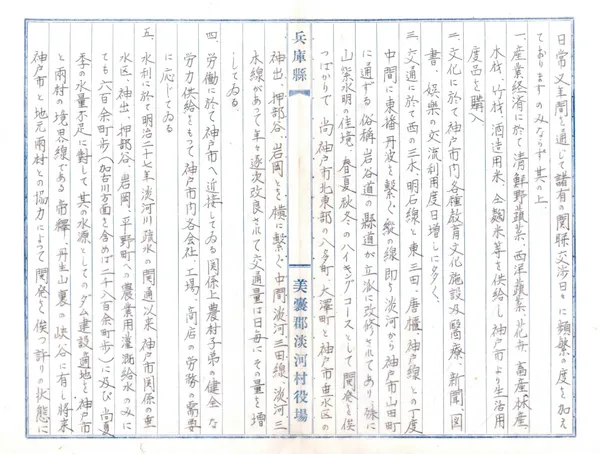 日常又年間を通じて諸有の関聯交渉日々に頻繁の度を加え
ておりますのみならず其の上
一、産業経済に於て清鮮野蔬菜、西洋蔬菜、花卉、畜産、林産、
木材、竹材、酒造用米、全麹米等を供給し神戸市より生活用
度品を購入
二、文化に於て神戸市内各種教育文化施設及医療、新聞、図
書、娯楽の交流利用度日増しに多く、
三、交通に於て西の三木、明石線と東三田、唐櫃、神戸線との丁度
中間に東播丹波を繋ぐ縦の線即ち淡河から神戸市山田町
に通ずる俗称岩谷道の縣道が立派に改修されてあり、殊に
山紫水明の佳境、春夏秋冬のハイキングコースとして開発を俟
つばかりで尚神戸市北東部の八多町、大澤町と神戸市垂水区の
神出、押部谷、岩岡とを横に繋ぐ中間淡河三田線、淡河三
木線があって年々逐次改良されて交通量は日毎にその量を増
してゐる
四、労働に於て神戸市へ近接してゐる関係上農村子弟の健全な
労力供給をもって神戸市内各会社、工場、商店の労務の需要
に応じてゐる
五、水利に於て明治二十七年淡河川疏水の開通以来神戸市関係の垂
水区、神出、押部谷、岩岡、平野町への農業用灌漑給水のみに
ても六百余町歩(加古川方面を含めば二千八百余町歩)に及び尚夏
季の水量不足に対して其の水源としてのダム建設適地を神戸市
と両村の境界線である帝釋、丹生山裏の峡谷に有し将来
神戸市と地元両村との協力によって開発を俟つ許りの状態に
兵庫縣
美嚢郡淡河村役場